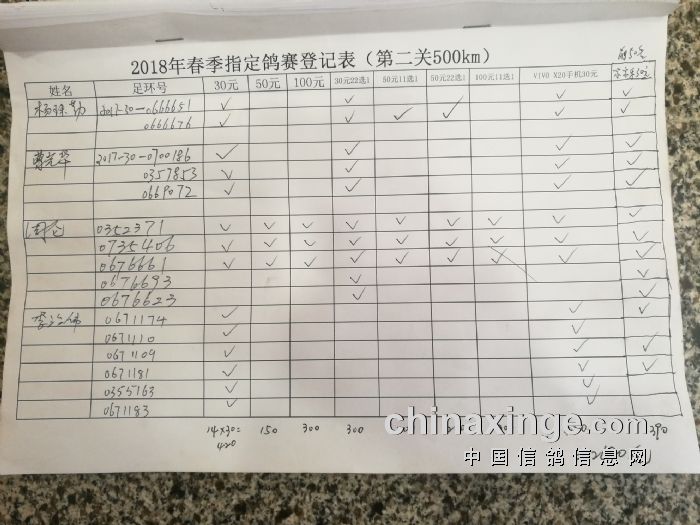 2018年春季指定鸽赛登记表（第二关500km）
姓名 足环号 30元 50元 100元 30元22选1 50元11选1 50元22选1 100元11选1 VIVO X20手机30元
2017-30-0666651 ✓ ✓ ✓ ✓
0666676 ✓ ✓ ✓ ✓ ✓ ✓
2017-30-0700186 ✓ ✓ ✓ ✓
0357853 ✓ ✓ ✓ ✓
0669072 ✓ ✓ ✓ ✓
0352371 ✓ ✓ ✓ ✓ ✓ ✓ ✓ ✓ ✓
0735406 ✓ ✓ ✓ ✓ ✓ ✓ ✓ ✓ ✓
0676661 ✓ ✓ ✓ ✓ ✓ ✓ ✓ ✓
0676693 ✓ ✓
0676623 ✓ ✓
0671174 ✓ ✓
0671110 ✓ ✓
0671109 ✓ ✓ ✓
0671181 ✓ ✓ ✓
0355163 ✓ ✓
0671183 ✓
14×30= 150 300 300 390
420
chinaxinge.com
中国信鸽信息网